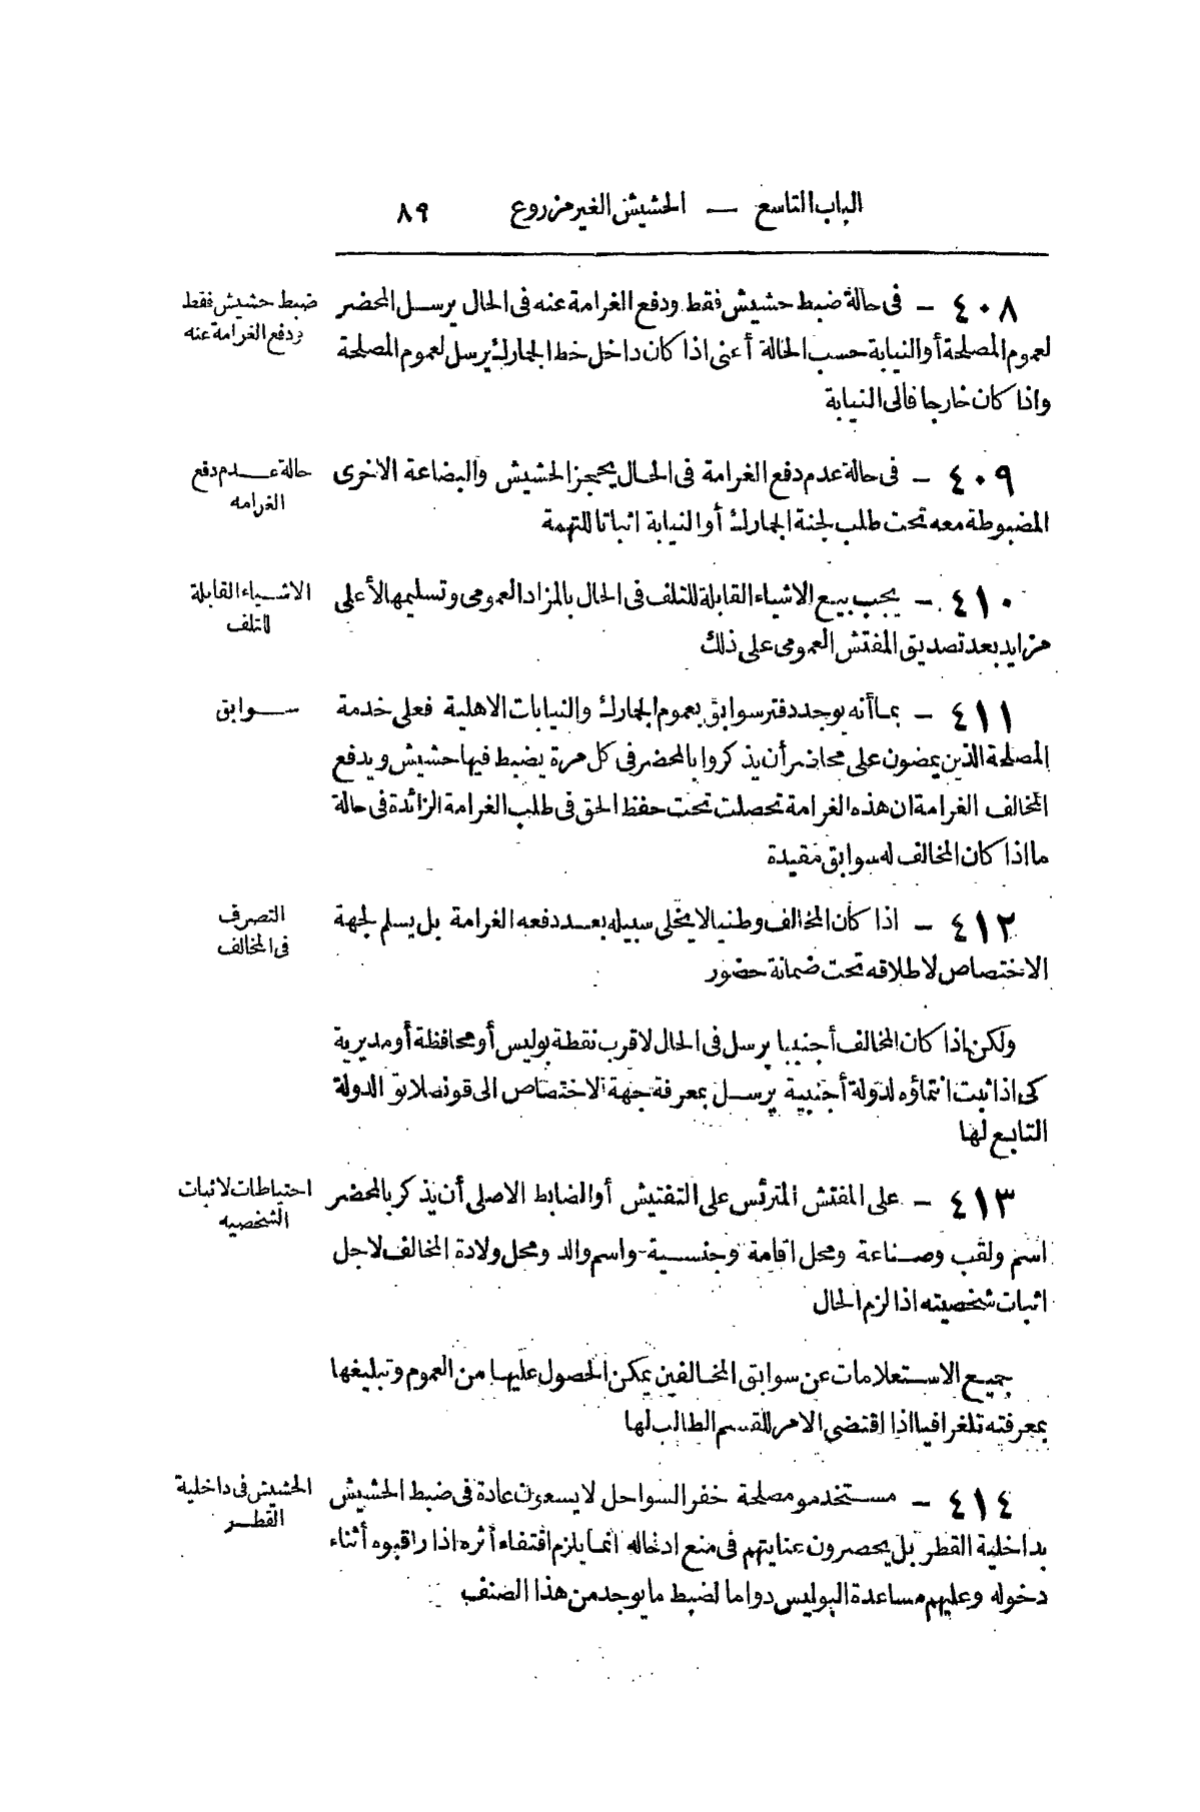 الباب التاسع — الحشيش الغير مزروع ٨٩
٤٠٨ — فى حالة ضبط حشيش فقط ودفع الغرامة عنه فى الحال يرسل المحضر
لعموم المصلحة أو النيابة حسب الحالة أعنى اذا كان داخل خط الجمارك يرسل لعموم المصلحة
واذا كان خارجا فالى النيابة
ضبط حشيش فقط
ودفع الغرامة عنه
٤٠٩ — فى حالة عدم دفع الغرامة فى الحال يحجز الحشيش والبضاعة الاخرى
المضبوطة معه تحت طلب لجنة الجمارك أو النيابة اثباتا للتهمة
حالة عدم دفع
الغرامه
٤١٠ — يجب بيع الاشياء القابلة للتلف فى الحال بالمزاد العمومى وتسليمها لأعلى
مزايد بعد تصديق المفتش العمومى على ذلك
الاشياء القابلة
للتلف
٤١١ — بما أنه يوجد دفتر سوابق بعموم الجمارك والنيابات الاهلية فعلى خدمة
المصلحة الذين يمضون على محاضر أن يذكروا بالمحضر فى كل مرة يضبط فيها حشيش ويدفع
المخالف الغرامة ان هذه الغرامة تحصلت تحت حفظ الحق فى طلب الغرامة الزائدة فى حالة
ما اذا كان المخالف له سوابق مقيدة
سوابق
٤١٢ — اذا كان المخالف وطنيا لا يخلى سبيله بعد دفعه الغرامة بل يسلم لجهة
الاختصاص لاطلاقه تحت ضمانة حضور
التصرف
فى المخالف
ولكن اذا كان المخالف أجنبيا يرسل فى الحال لاقرب نقطة بوليس أو محافظة أو مديرية
كى اذا ثبت انتماؤه لدولة أجنبية يرسل بمعرفة جهة الاختصاص الى قونصلاتو الدولة
التابع لها
٤١٣ — على المفتش المترئس على التفتيش أو الضابط الاصلى أن يذكر بالمحضر
اسم ولقب وصناعة ومحل اقامة وجنسية واسم والد ومحل ولادة المخالف لاجل
اثبات شخصيته اذا لزم الحال
احتياطات لاثبات
الشخصيه
جميع الاستعلامات عن سوابق المخالفين يمكن الحصول عليها من العموم وتبليغها
بمعرفته تلغرافيا اذا اقتضى الامر للقسم الطالب لها
٤١٤ — مستخدمو مصلحة خفر السواحل لا يسعون عادة فى ضبط الحشيش
بداخلية القطر بل يحصرون عنايتهم فى منع ادخاله انما يلزم اقتفاء أثره اذا راقبوه أثناء
دخوله وعليهم مساعدة البوليس دواما لضبط ما يوجد من هذا الصنف
الحشيش فى داخلية
القطر